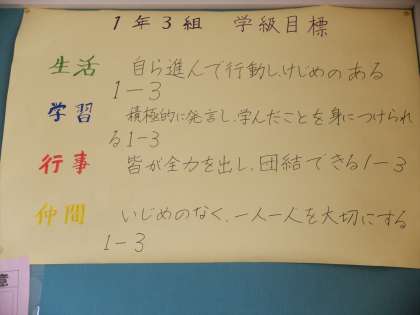 1年3組 学級目標
生活 自ら進んで行動し、けじめのある
1-3
学習 積極的に発言し、学んだことを身につけられ
る1-3
行事 皆が全力を出し、団結できる1-3
仲間 いじめのなく、一人一人を大切にする
1-3
章